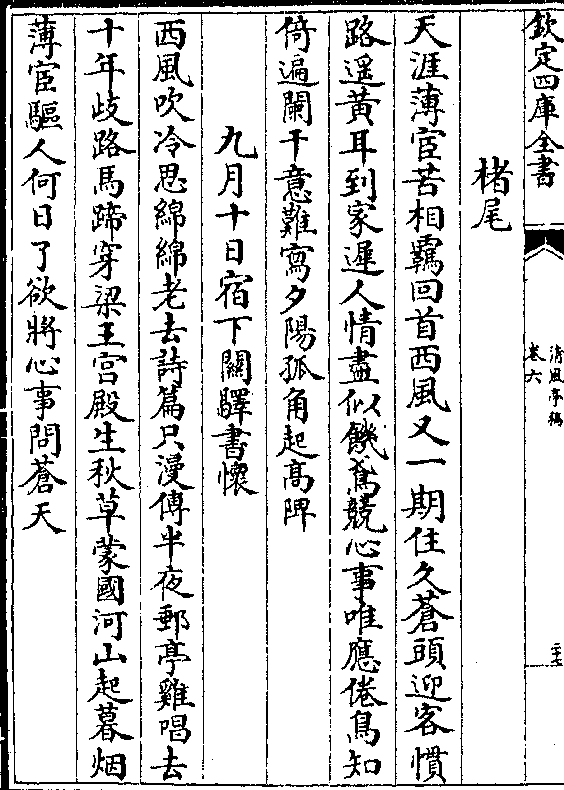 欽定四庫全書
清風亭稿
卷六
二十七
楮尾
天涯薄宦苦相羈回首西風又一期住久蒼頭迎客慣
路遥黃耳到家遲人情盡似饑鳶競心事唯應倦鳥知
倚遍闌干意難寫夕陽孤角起髙陴
九月十日宿下關驛書懷
西風吹冷思綿綿老去詩篇只漫傳半夜郵亭雞唱去
十年歧路馬蹄穿梁王宫殿生秋草蒙國河山起暮烟
薄宦驅人何日了欲將心事問蒼天